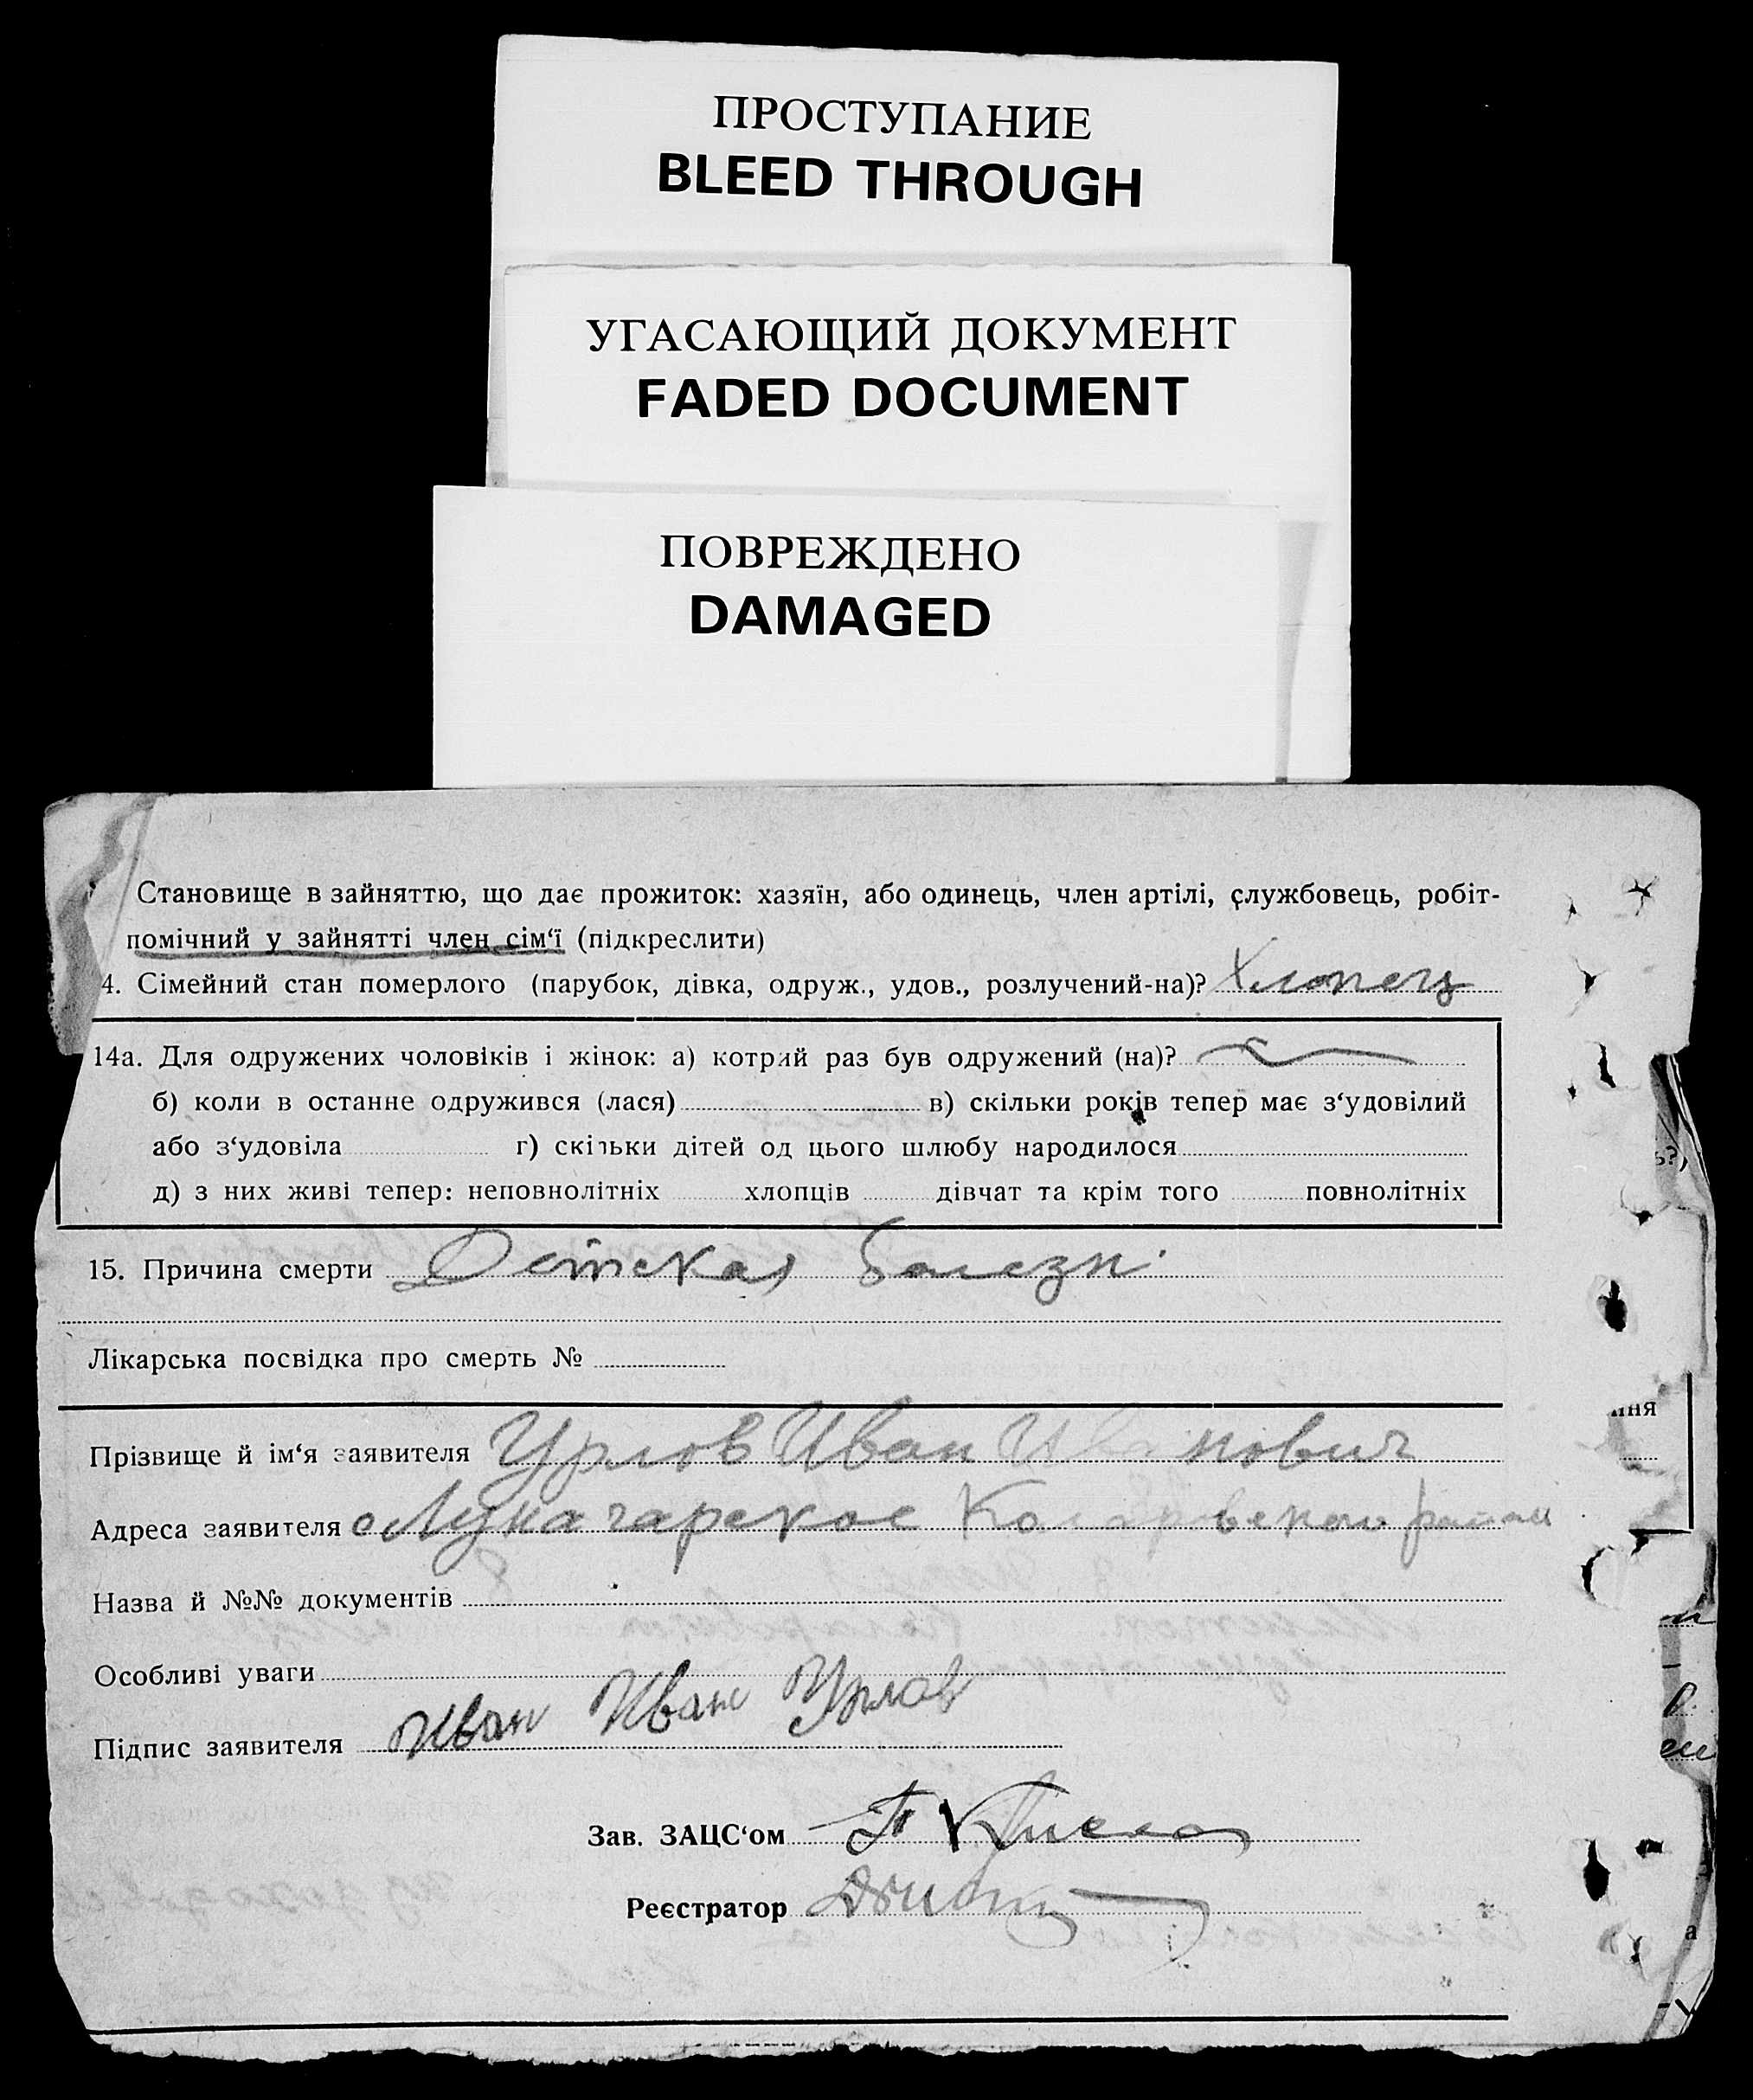 ПРОСТУПАНИЕ
BLEED THROUGH
УГАСАЮЩИЙ ДОКУМЕНТ
FADED DOCUMENT
ПОВРЕЖДЕНО
DAMAGED
Становище в зайняттю, що дає прожиток: хазяїн, або одинець, член артілі, службовець, робіт-
помічний у зайнятті член сім‘ї (підкреслити)
4. Сімейний стан померлого (парубок, дівка, одруж., удов., розлучений-на)? Хлопець
14а. Для одружених чоловіків і жінок: а) котрий раз був одружений (на)?
б) коли в останне одружився (лася) в) скільки років тепер має з‘удовілий
або з‘удовіла г) скільки дітей од цього шлюбу народилося
д) з них живі тепер: неповнолітніх хлопців дівчат та крім того повнолітніх
15. Причина смерти Детская болезн
Лікарська посвідка про смерть №
ння
Прізвище й ім‘я заявителя Урлов Иван Иванович
Адреса заявителя с Луначарское Коларовского района
Назва й №№ документів
Особливі уваги
Підпис заявителя Иван Иван Урлов
Зав. ЗАЦС‘ом
Реєстратор